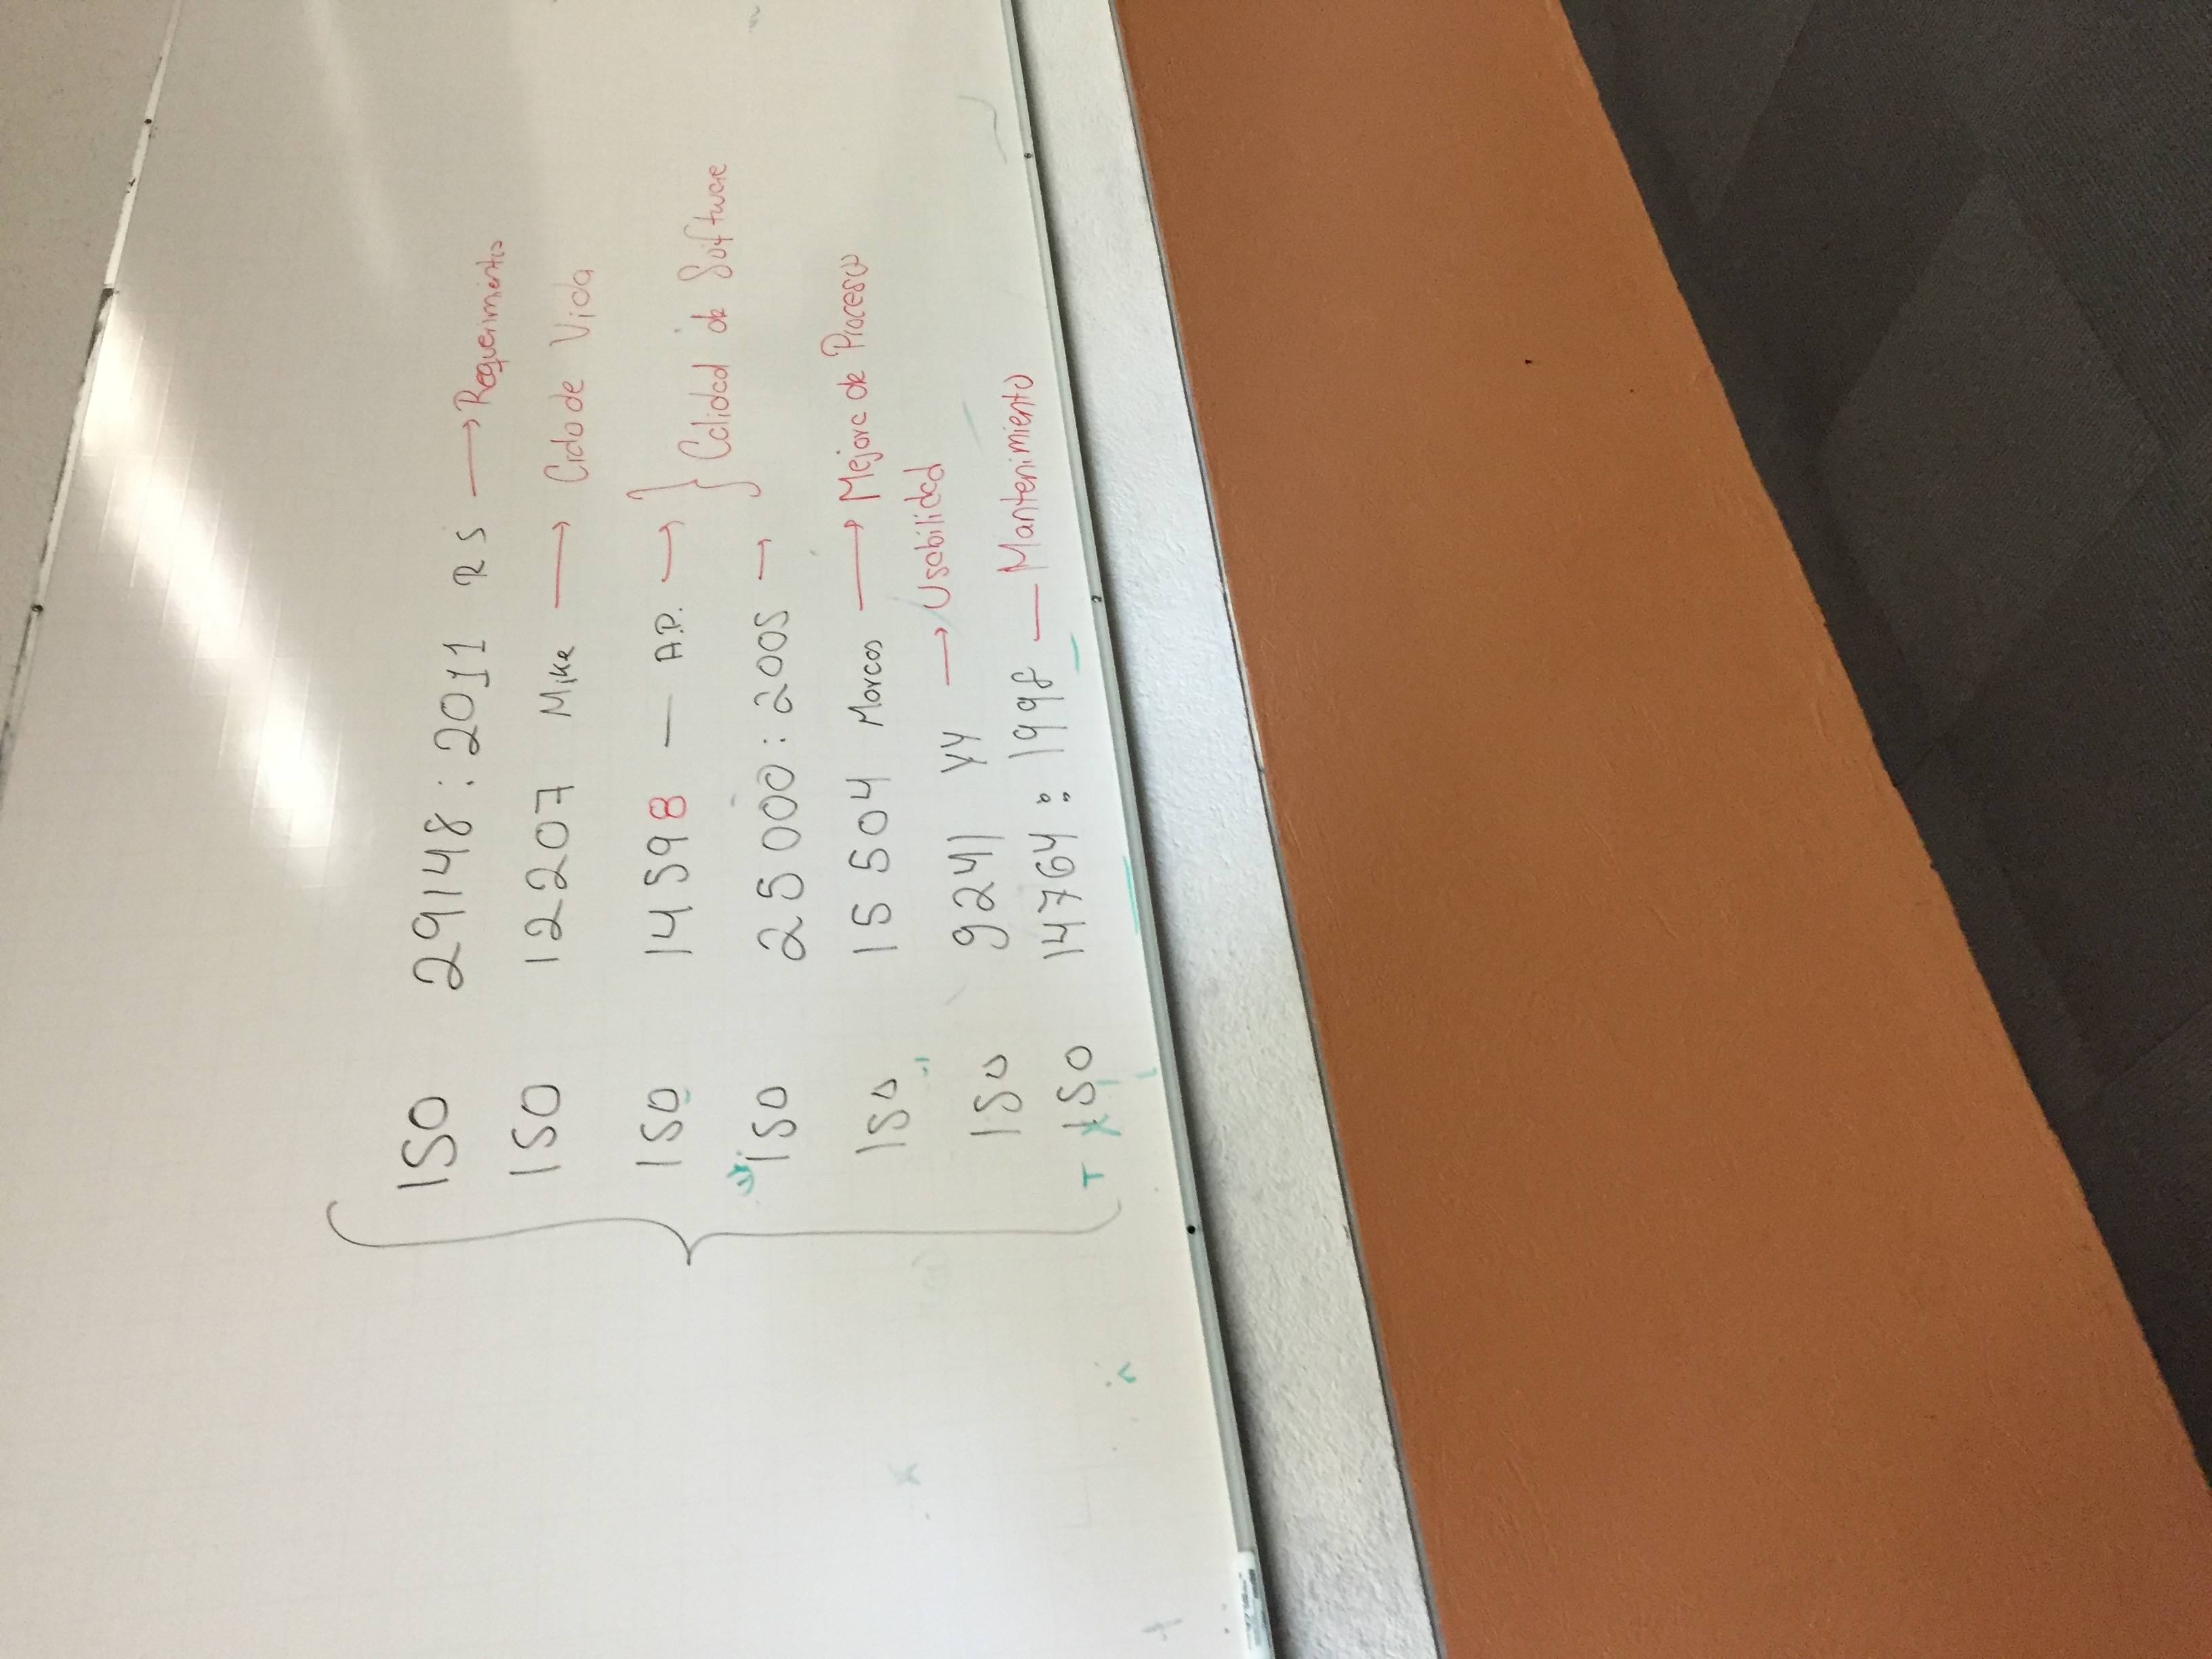 ISO 29148 : 2011 RS → Requerimientos
ISO 12207 Mike → Ciclo de Vida
ISO 14598 — A.P. →
} Calidad de Software
ISO 25000 : 2005 →
ISO 15504 Marcos → Mejora de Procesos
ISO 9241 YY → Usabilidad
ISO 14764 : 1998 — Mantenimiento